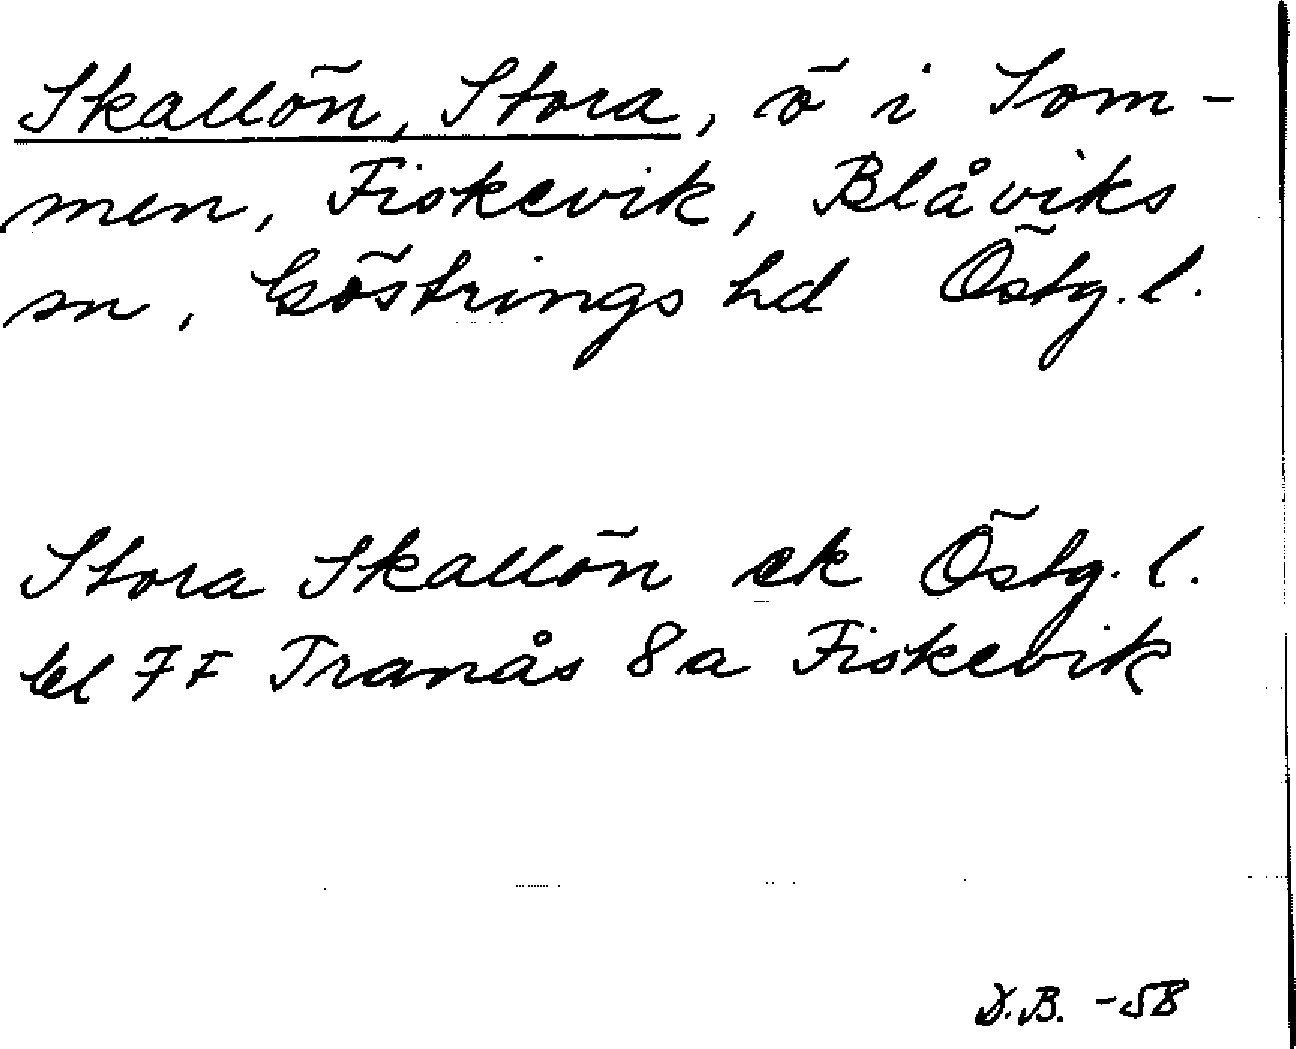 Skallön, Stora, ö i Som-
men, Fiskevik, Blåviks
sn, Göstrings hd Östg. l.
Stora Skallön ek Östg. l.
bl 7F Tranås 8a Fiskevik
D.B. -58